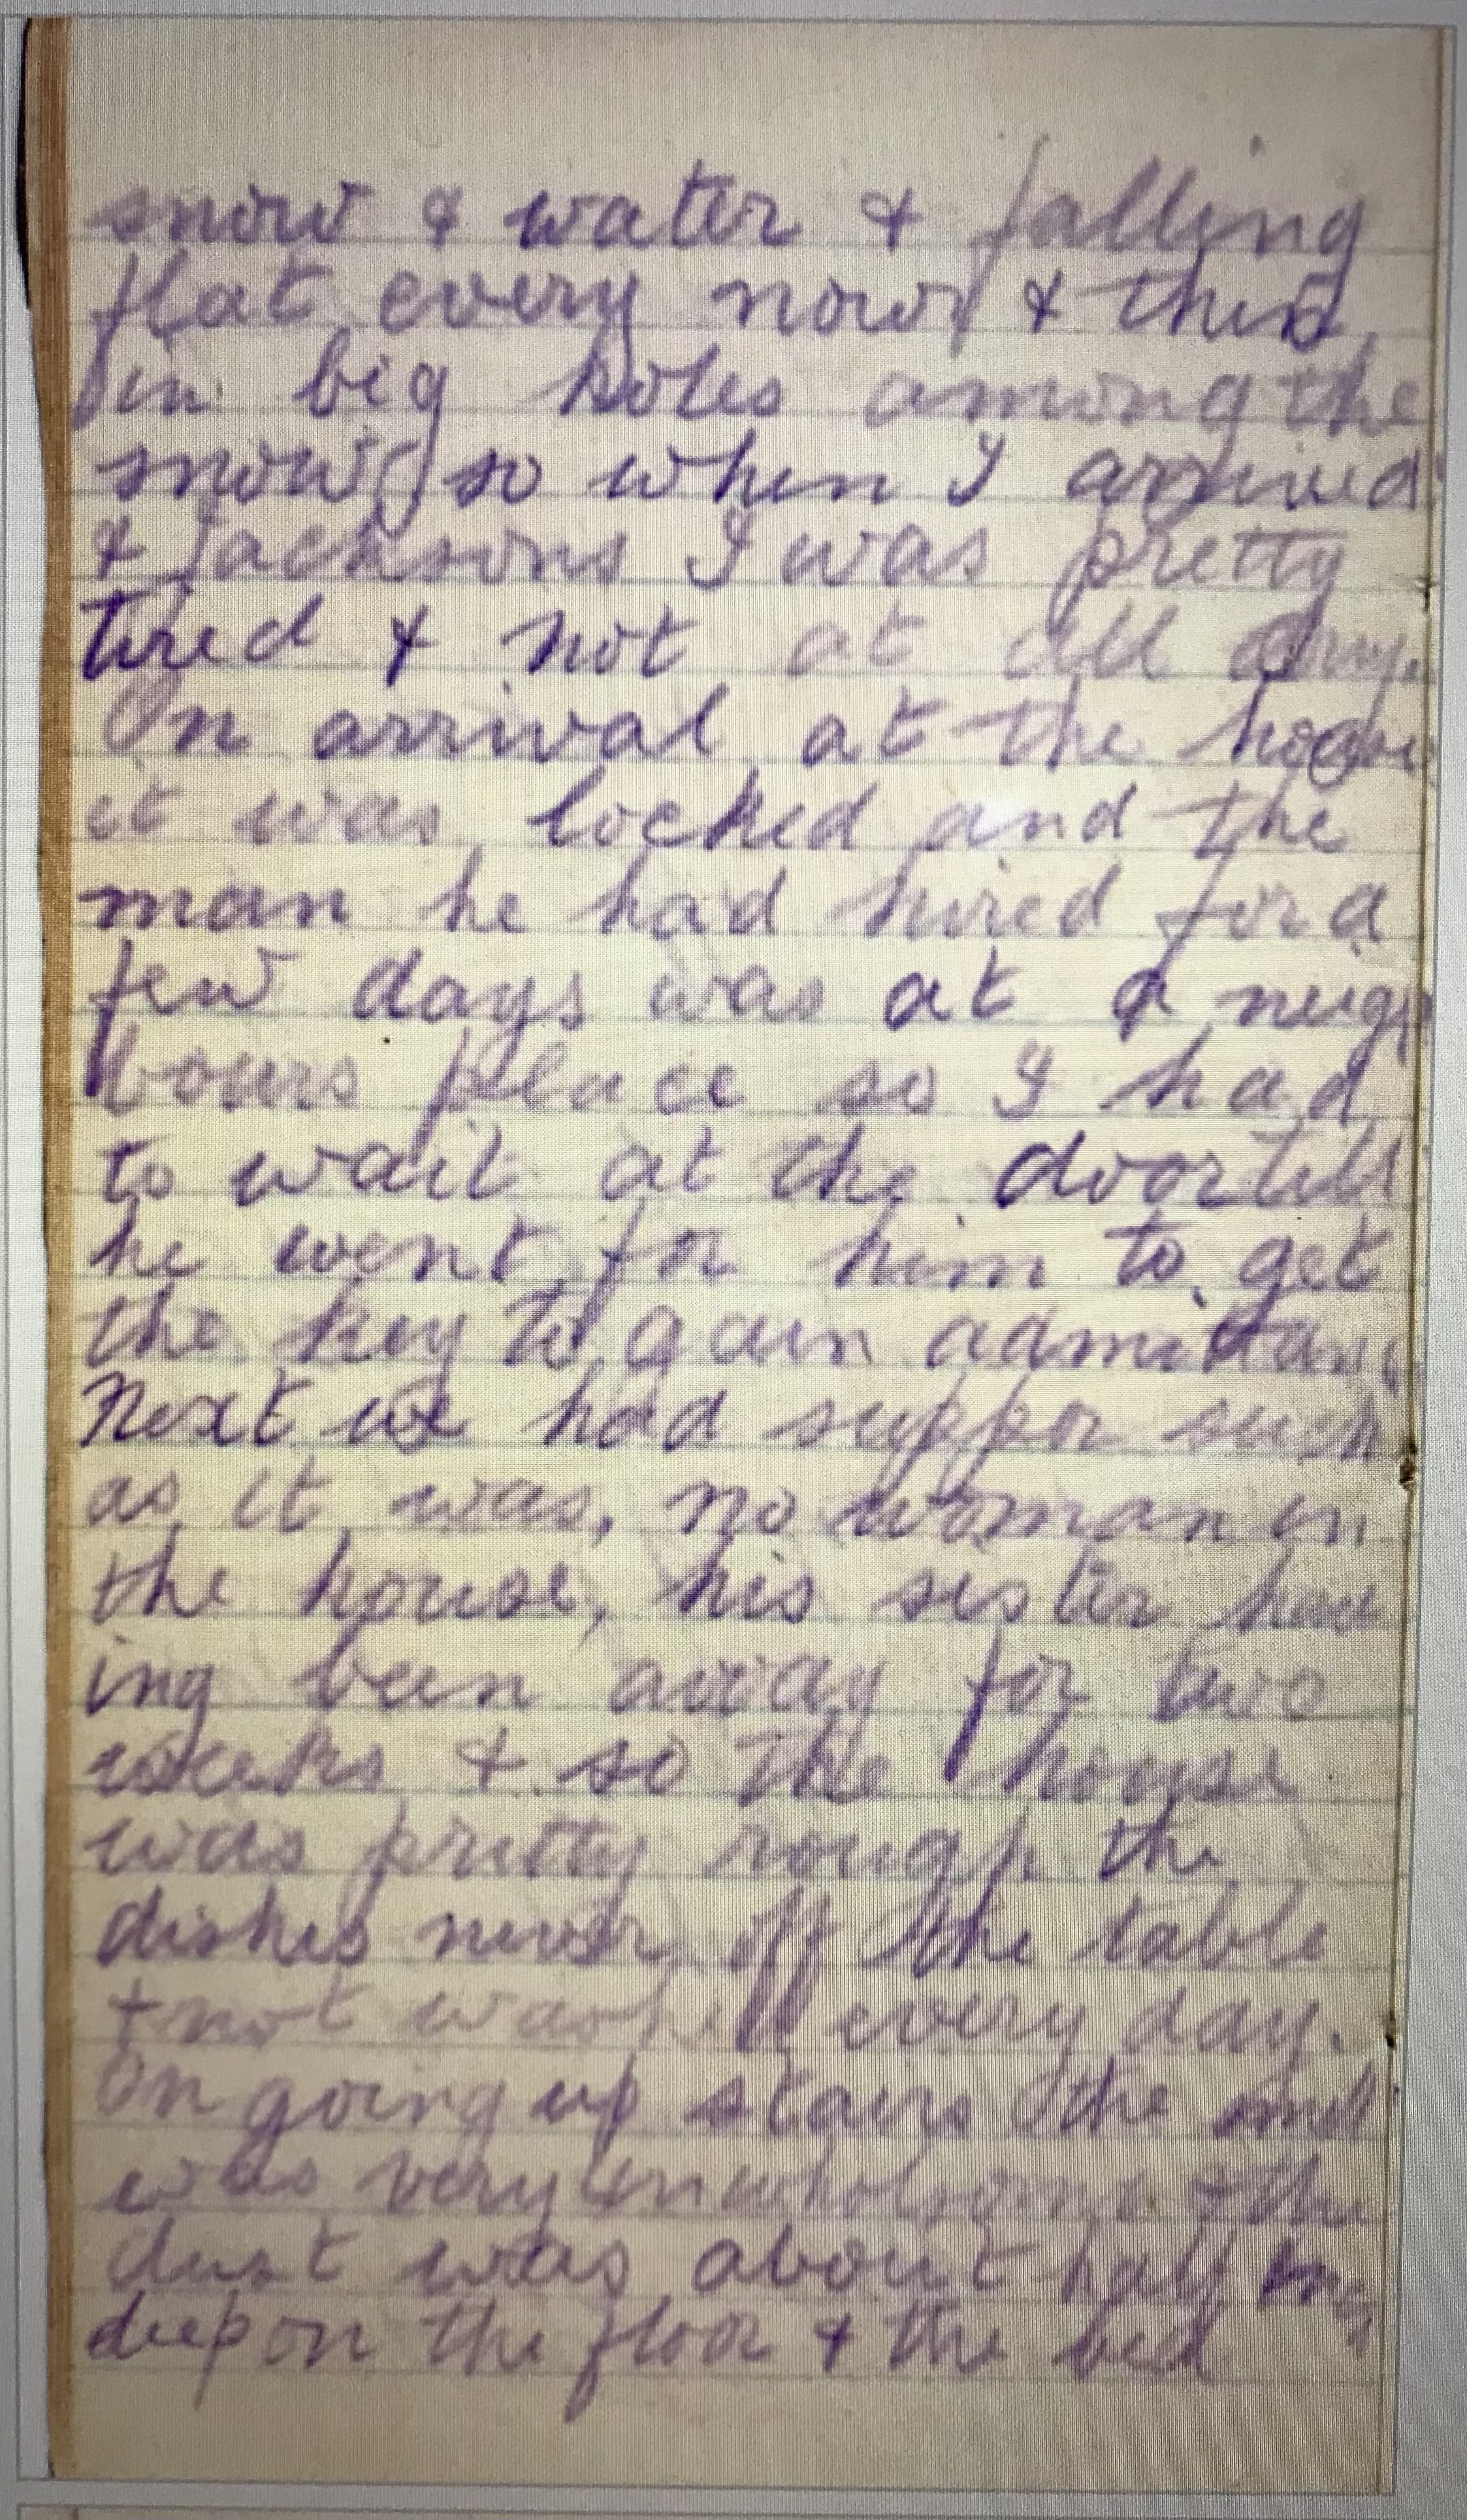 snow & water & falling
flat every now & then
in big holes among the
snow so when I arrived
& Jacksons I was pretty
tired & not at all
On arrival at the house
it was locked and the
man he had hired for a
few days was at a neigh
bours place so I had
to wait at the door till
he went for him to get
the key to gain admittance
Next we had supper such
as it was, no woman in
the house, his sister hav
ing been away for two
weeks & so the house
was pretty rough the
dishes never off the table
& not washed every day.
On going up stairs the smell
was very unwholesome & the
dust was about half
deep on the floor & the bed